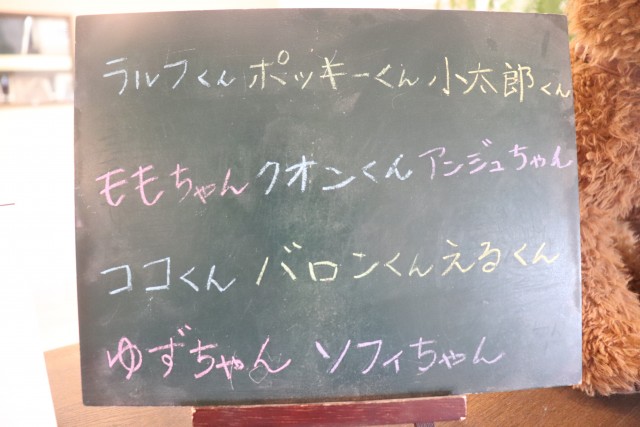 ラルフくん ポッキーくん 小太郎くん
ももちゃん クオンくん アンジュちゃん
ココくん バロンくん えるくん
ゆずちゃん ソフィちゃん